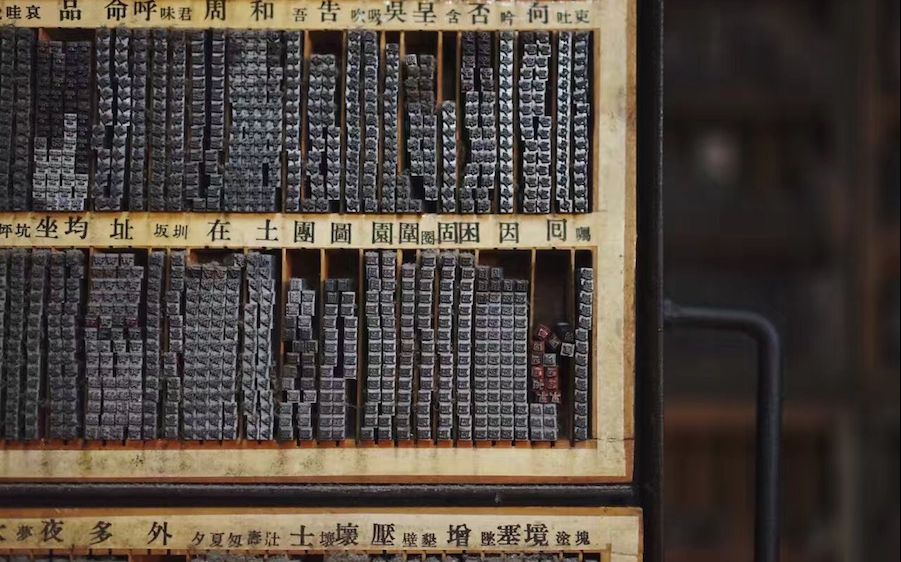 吏吐向吟否含呈吳吸吹告吾和周君味呼命品哀哇
囑回因困固圈圍園圖團土在圳坂址均坐坑坪
塊塗境塞墜增墾壁壓壞壤士壯壽夏夕外多夜夢